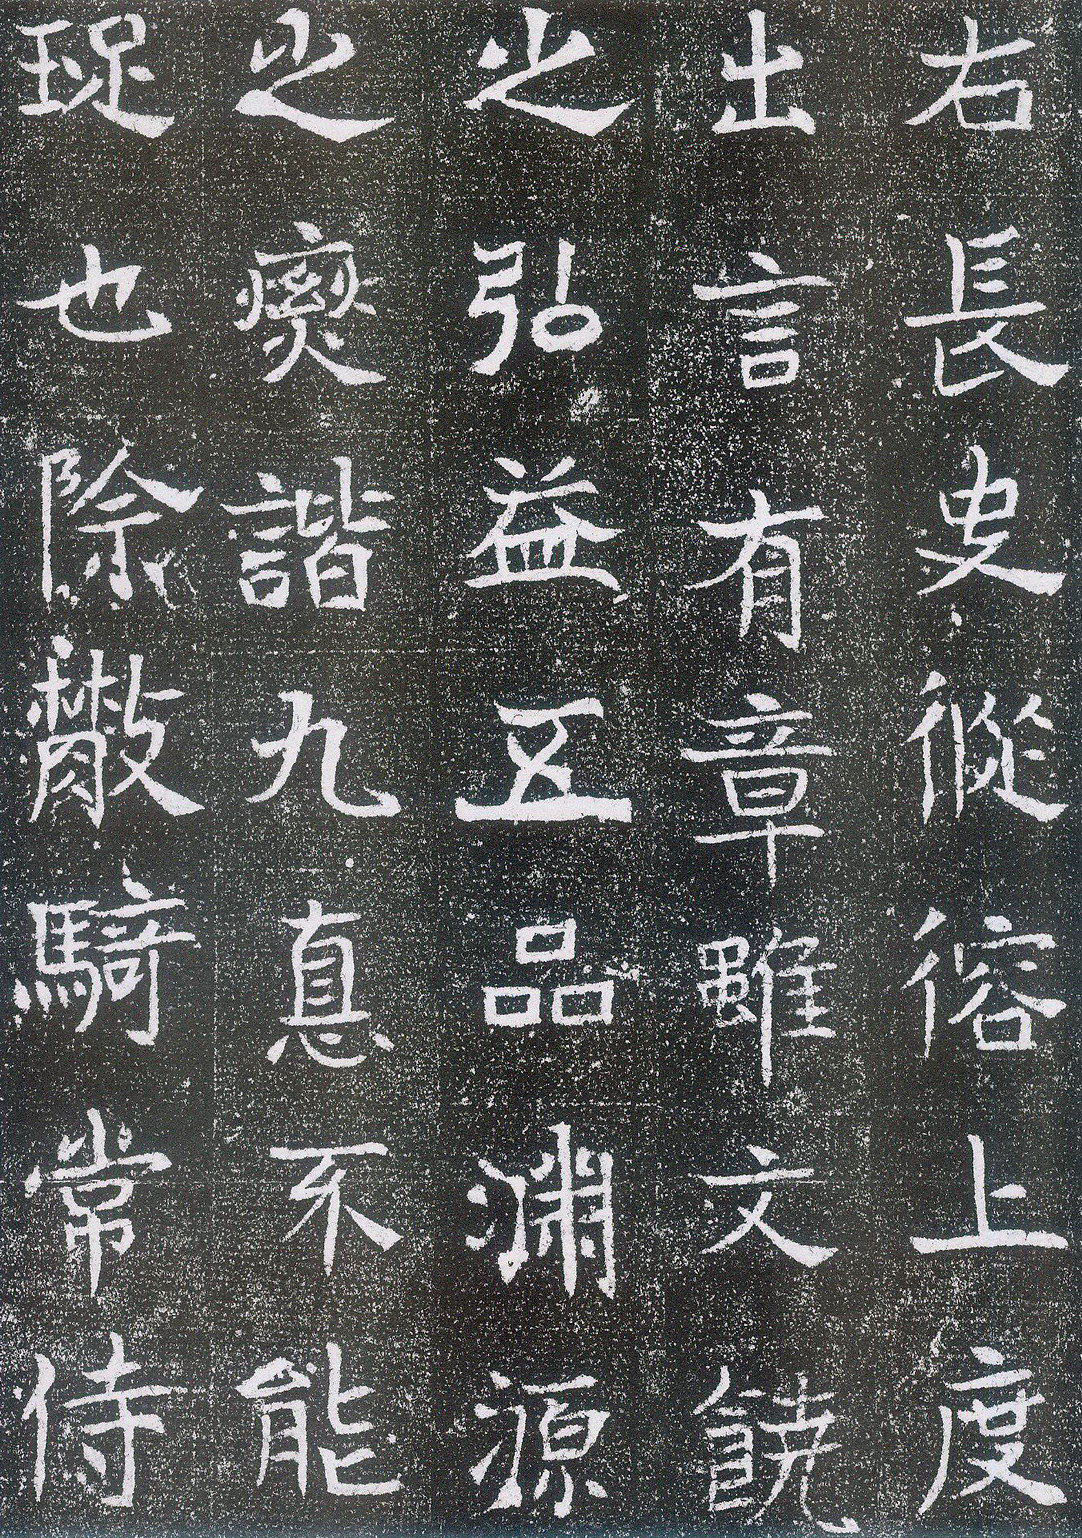 右長史從容上度
出言有章雖文饒
之弘益五品淵源
之爕諧九惪不能
琩也除散騎常侍